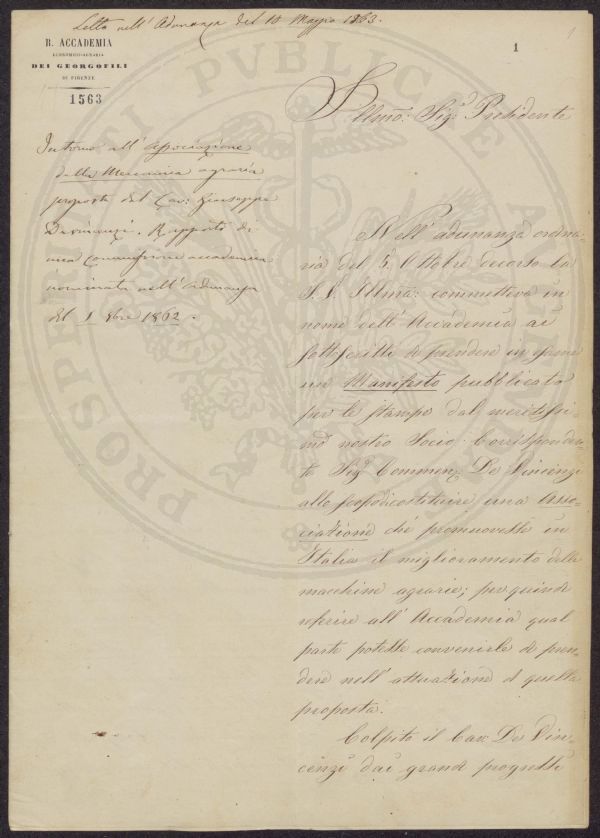 Letta nell'Adunanza del 10 Maggio 1863.
R. ACCADEMIA
ECONOMICO-AGRARIA
DEI GEORGOFILI
DI FIRENZE
1563
1
Intorno all'associazione
della Meccanica agraria
proposta del Cav: Giuseppe
Devincenzi. Rapporto di
una Commissione accademica
nominata nell'adunanza
del 5 8bre 1862.
Illmo: Sig.r Presidente
Nell'adunanza ordina-
ria del 5. Ottobre decorso la
S. V. Illma: commetteva in
nome dell'Accademia ai
sottoscritti di prendere in esame
un Manifesto pubblicato
per le stampe dal meritissi-
mo nostro Socio Corrisponden-
te Sig.r Commen. De Vincenzi
allo scopo di costituire una Asso-
ciazione che promuovesse in
Italia il miglioramento delle
macchine agrarie; per quindi
referire all'Accademia qual
parte potesse convenirle di pren-
dere nell'attuazione di quella
proposta.
Colpito il Cav. De Vin-
cenzi dai grandi progressi
PROSPERITATI PUBLICAE AUGENDAE